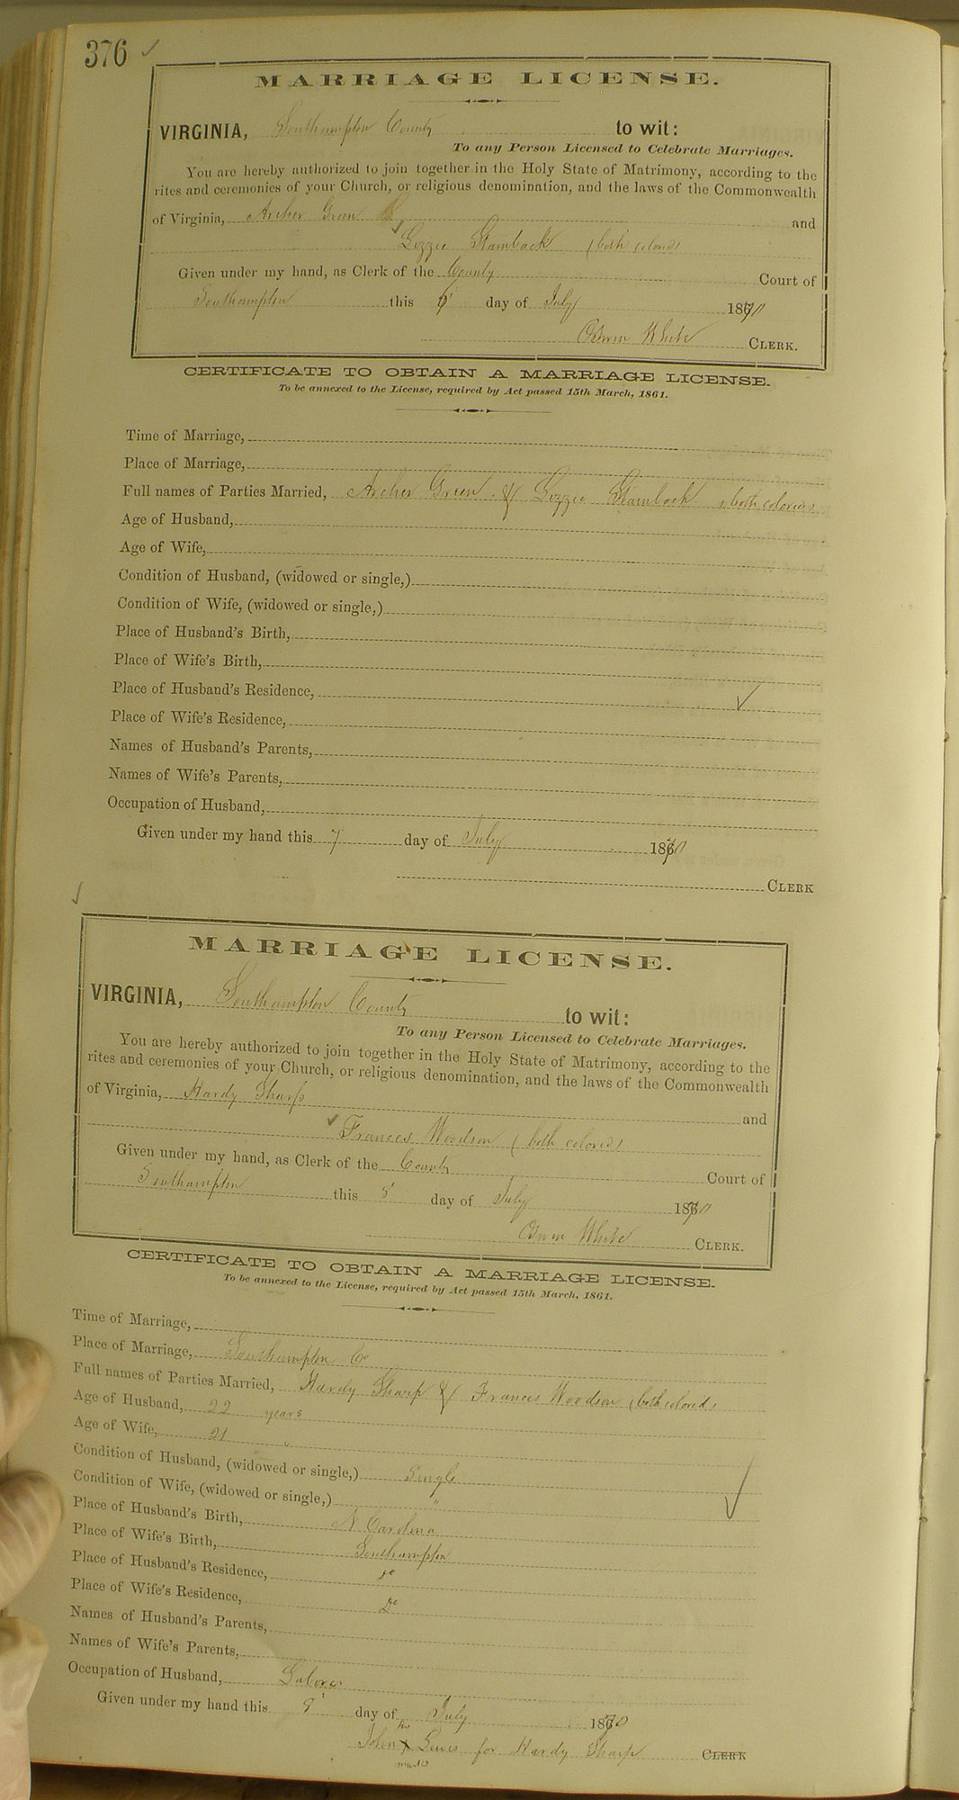 376
MARRIAGE LICENSE.
VIRGINIA, Southampton County to wit:
To any Person Licensed to Celebrate Marriages.
You are hereby authorized to join together in the Holy State of Matrimony, according to the
rites and ceremonies of your Church, or religious denomination, and the laws of the Commonwealth
of Virginia, Archer Green and
Lizzie Stamback (both colored)
Given under my hand, as Clerk of the County Court of
Southampton this day of July 1870
White CLERK.
CERTIFICATE TO OBTAIN A MARRIAGE LICENSE.
To be annexed to the License, required by Act passed 15th March, 1861.
Time of Marriage,
Place of Marriage,
Full names of Parties Married, Archer Green & Lizzie Stamback (both colored)
Age of Husband,
Age of Wife,
Condition of Husband, (widowed or single,)
Condition of Wife, (widowed or single,)
Place of Husband's Birth,
Place of Wife's Birth,
Place of Husband's Residence,
Place of Wife's Residence,
Names of Husband's Parents,
Names of Wife's Parents,
Occupation of Husband,
Given under my hand this 7 day of July 1870
CLERK
MARRIAGE LICENSE.
VIRGINIA, Southampton County to wit:
To any Person Licensed to Celebrate Marriages.
You are hereby authorized to join together in the Holy State of Matrimony, according to the
rites and ceremonies of your Church, or religious denomination, and the laws of the Commonwealth
of Virginia, Hardy Sharp and
Frances Woodson (both colored)
Given under my hand, as Clerk of the County Court of
Southampton this day of July 1870
White CLERK.
CERTIFICATE TO OBTAIN A MARRIAGE LICENSE.
To be annexed to the License, required by Act passed 15th March, 1861.
Time of Marriage,
Place of Marriage, Southampton Co
Full names of Parties Married, Hardy Sharp & Frances Woodson (both colored)
Age of Husband, 22 years
Age of Wife, 21 "
Condition of Husband, (widowed or single,) Single
Condition of Wife, (widowed or single,) "
Place of Husband's Birth, N. Carolina
Place of Wife's Birth, Southampton
Place of Husband's Residence, do
Place of Wife's Residence, do
Names of Husband's Parents,
Names of Wife's Parents,
Occupation of Husband,
Given under my hand this 9 day of July 1870
his
John X Lewis for Hardy Sharp CLERK
mark